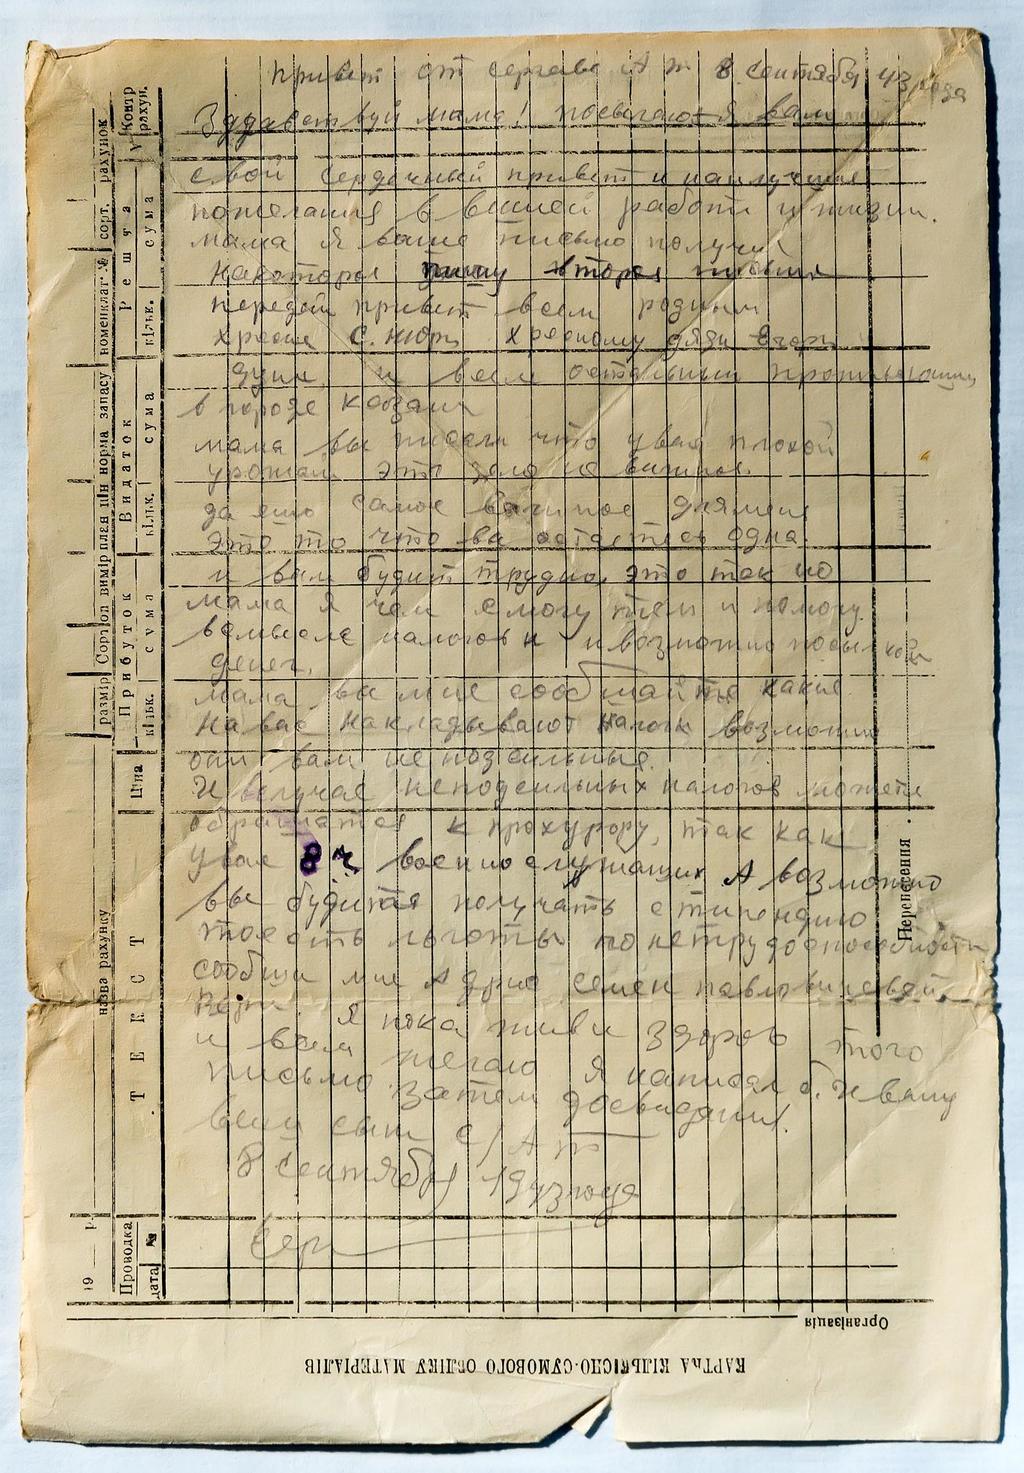 привет от сергаве А т 8 сентября 43 года
Здравствуй мама! посылаю я вам
свой сердечный привет и наилучшие
пожелания в вашей работи и жизни.
мама я ваше письмо получил
накоторое пишу второе письмо
передай привет всем родным
хресне С. Нюри хресному дяди
и всем остальным проживающим
в городе Казани
мама вы писали что увас плохой
урожай это дело не важное.
да ешо самое важное дляменя
это то что вы остаетесь одна.
и вам будит трудно, это так но
мама я чем смогу тем и помогу.
налогов и возможно посылкой
денег.
мама вы мне сообщайте какие
на вас накладывают налоги возможно
они вам непозсильные.
И вслучае неподсильных налогов можете
обращатся к прокурору, так как
увас 8 ч. военнослужащих А возможно
вы будите получать стипендию
тоесть льготы по нетрудоспособности
сообщи мне Адрис семен павловича
Я пока жив и здоров того
и вам желаю я написал б. Ивану
письмо. Затем досвидания.
Ваш сын с/Ат
8 сентября 1943 года
Сер
19 — р.
Проводка
дата
№
назва рахунку
Т Е К С Т
Ціна
розмір
Сорт
вимір
норма запасу
номенклат. №
сорт. рахунок
Прибуток
кільк.
сума
Видаток
кільк.
сума
Решта
кільк.
сума
Контр рахун.
Перенесення
Організація
КАРТКА КІЛЬКІСНО-СУМОВОГО ОБЛІКУ МАТЕРІАЛІВ